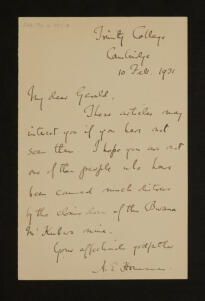 Trinity College
Cambridge
10 Feb. 1931
My dear Gerald,
These articles may
interest you if you have not
seen them. I hope you are not
one of the people who have
been caused much distress
by the closing down of the Bwana
M'Kubwa mine.
Your affectionate godfather
A. E. Housman.